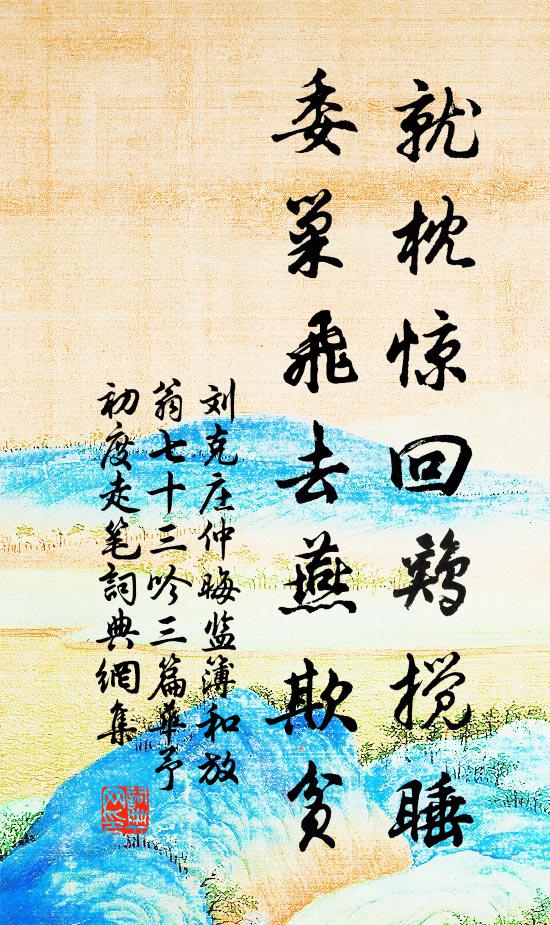 就枕惊回鸡搅睡
委巢飞去燕欺贫
刘克庄仲晦监簿和放
翁七十三吟三篇华予
初度走笔詞典網集